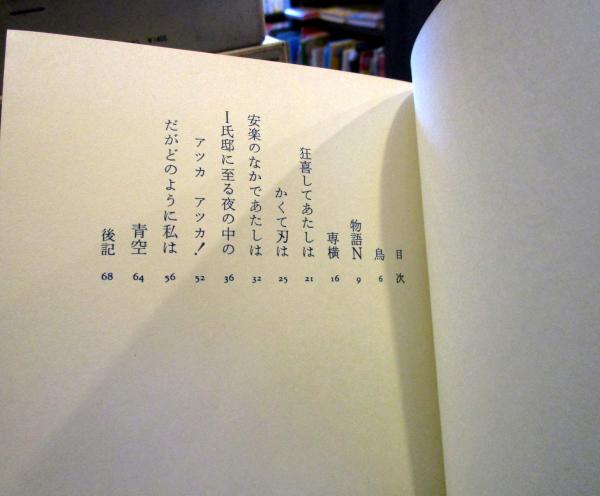 目次
鳥 6
物語N 9
専横 16
狂喜してあたしは 21
かくて刃は 25
安楽のなかであたしは 32
I氏邸に至る夜の中の 36
アツカ アツカ! 52
だがどのように私は 56
青空 64
後記 68